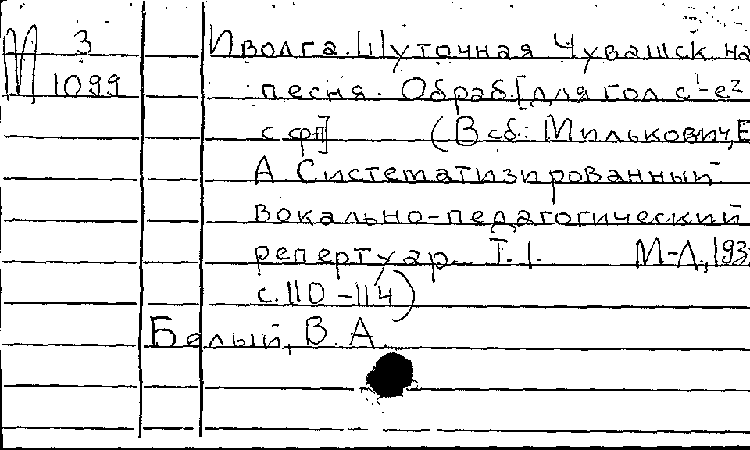 М 3 Иволга. Шуточная Чувашск на
1099 песня. Обраб. [для гол c¹-e²
с фп] (В сб: Милькович, Е
А. Систематизированный
вокально-педагогический
репертуар. Т. 1. М-Л, 193
с. 110-114)
Белый, В. А.